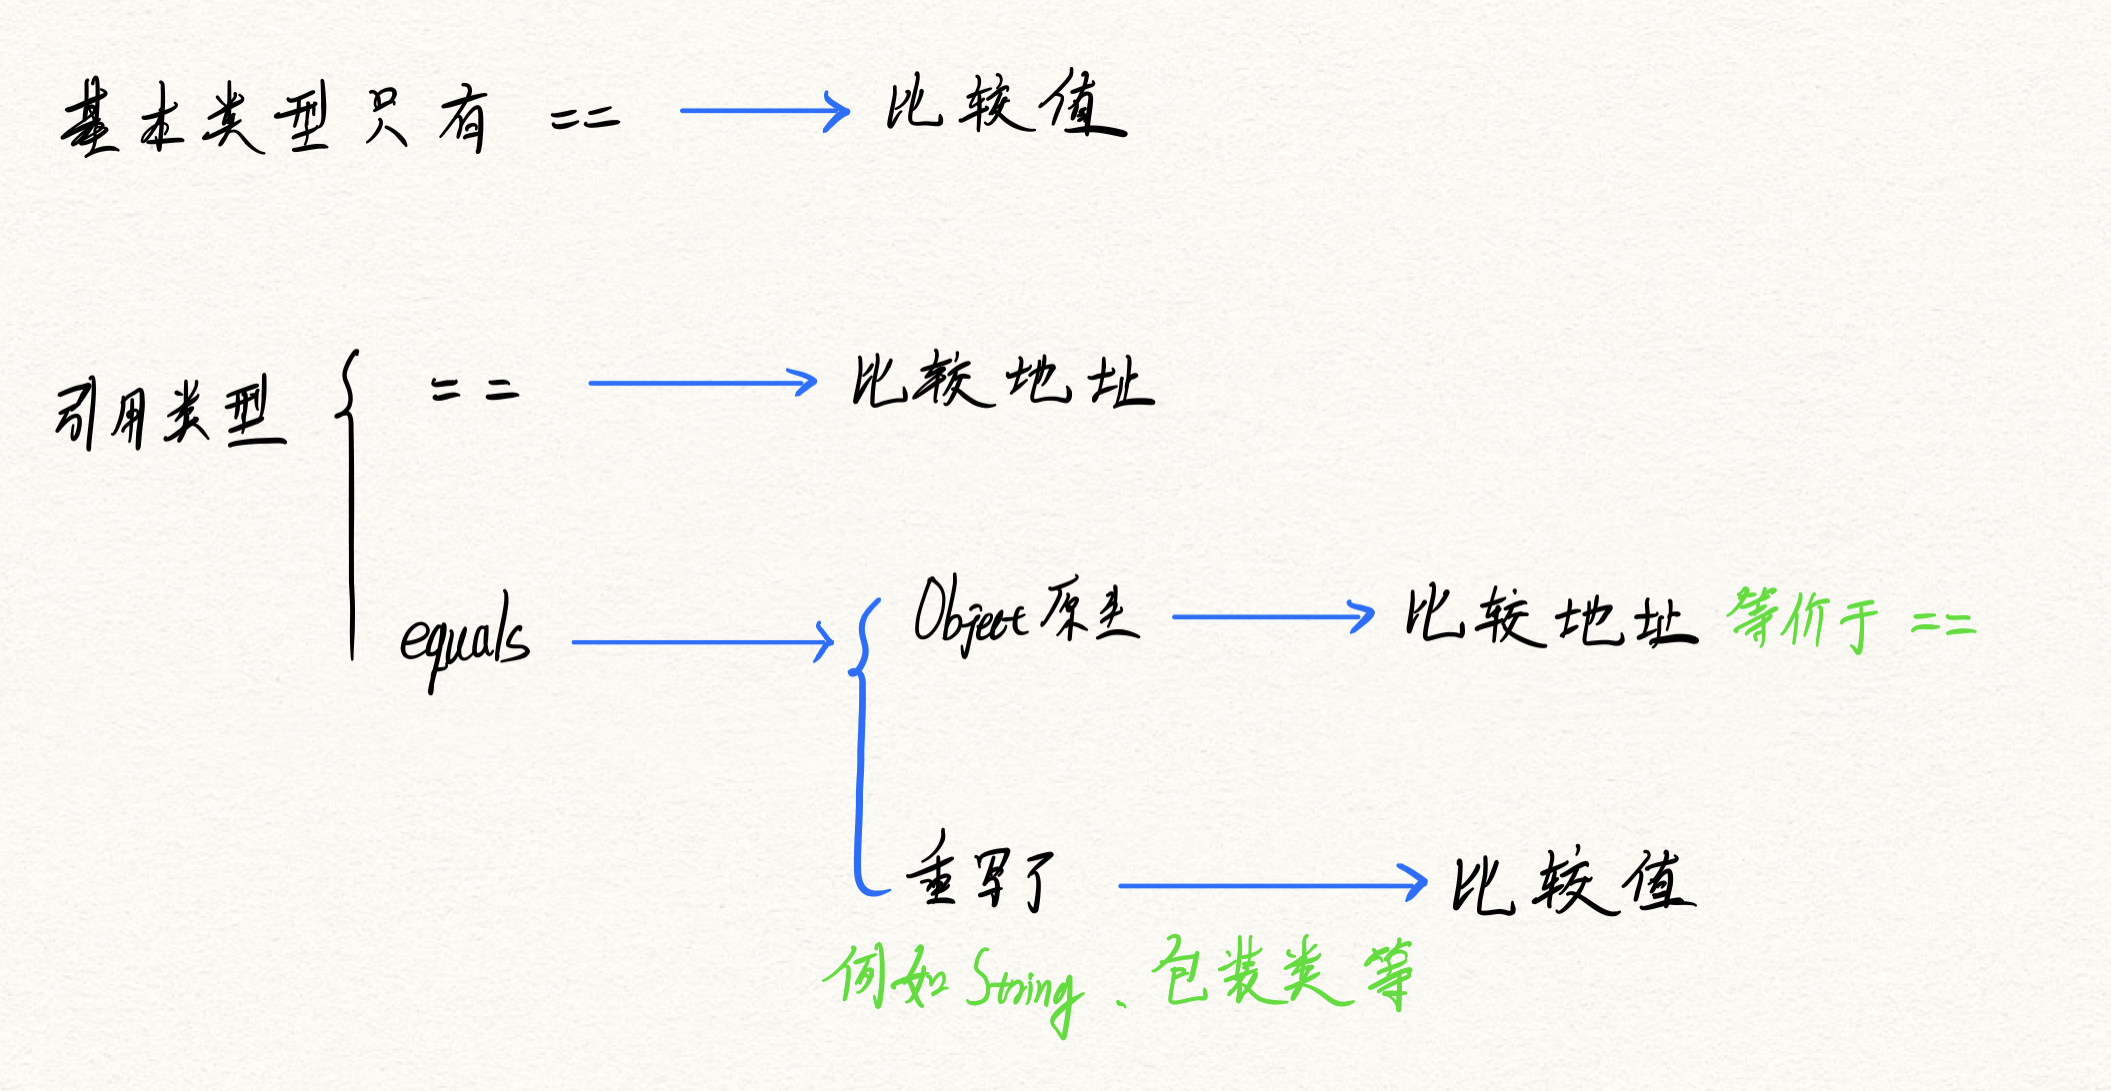 基本类型只有 == 比较值
引用类型
== 比较地址
equals
Object原生 比较地址 等价于 ==
重写了 比较值
例如String、包装类等